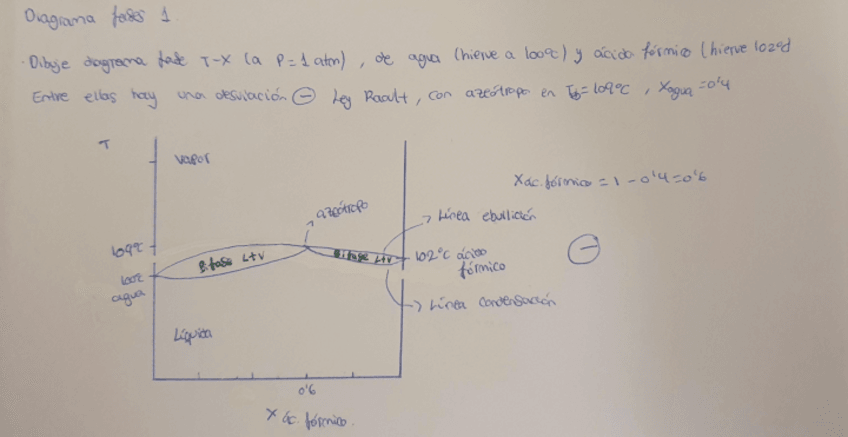 Diagrama fases 1.
· Dibuje diagrama fase T-X (a P = 1 atm), de agua (hierve a 100ºC) y ácido fórmico (hierve 102ºC)
Entre ellas hay una desviación ⊖ Ley Raoult, con azeótropo en Tb = 109ºC, Xagua = 0'4
T
vapor
X ác. fórmico = 1 - 0'4 = 0'6
azeótropo
→ Línea ebullición
109ºC
Bifase L+V
Bifase L+V
102ºC ácido
fórmico
⊖
100ºC
agua
→ Línea condensación
Líquido
0'6
X ác. fórmico.